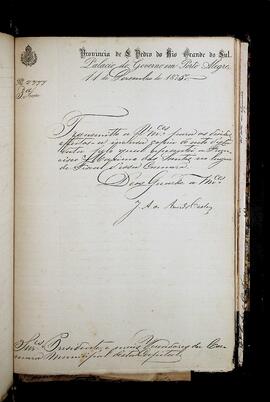 Provincia de S. Pedro do Rio Grande do Sul.
Palacio do Governo em Porto Alegre,
11 de Dezembro de 187
Nº 2777
3ª
Transmitto a V.mces para os devidos
effeitos a inclusa copia do acto d'esta
data pelo qual
dos Santos no lugar
de Fiscal d'essa Camara.
Deos Guarde a V.mces
J. A. de Azevedo Castro
Snr.es Presidente e mais Vereadores da Ca-
mara Municipal desta Capital.